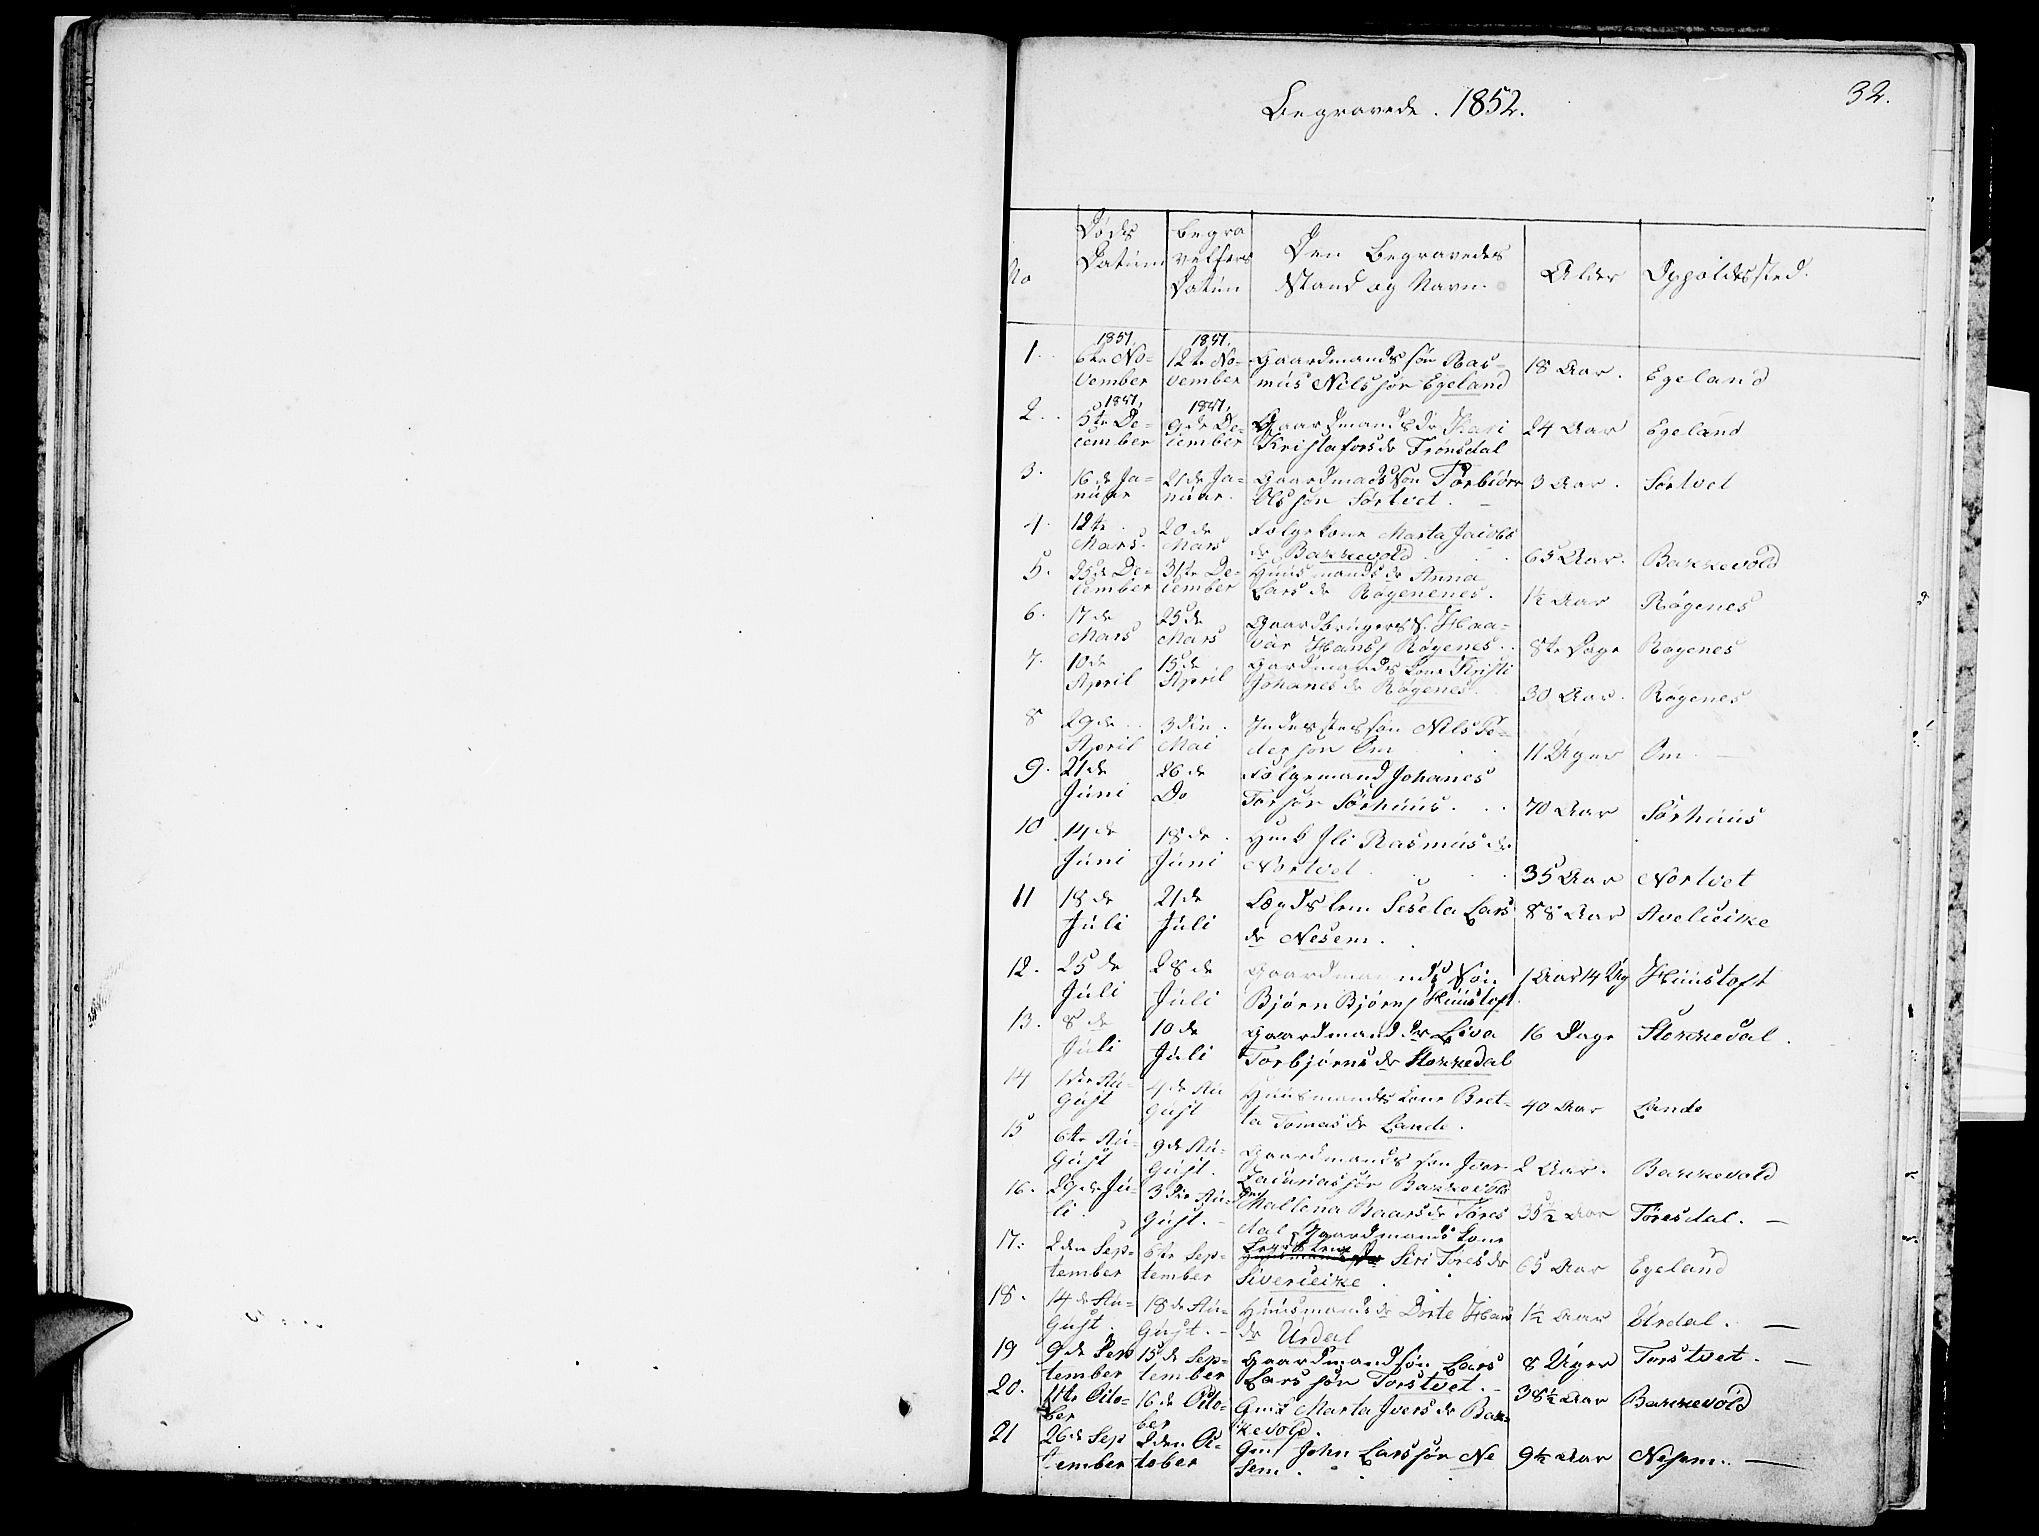 Begravede. 1852.
32.
No
Døds Datum
Begravelses Datum
Den Begravedes Stand og Navn.
Alder
Opholdssted.
1. 1851. 6te November 1851. 12te November Gaardmands søn Rasmus Nilssøn Egeland 18 Aar. Egeland
2. 1851. 5te December 1851. 9de December Gaardmands dr Kari Kristafersdr Trønsdal 24 Aar Egeland
3. 16de Januar 21de Januar. Gaardmads Søn Torbiørn Olssøn Sørtvet. 3 Aar. Sørtvet
4. 12te Mars. 20de Mars Folgekone Marta Jacobsdr Bakkevold 65 Aar. Bakkevold
5. 25de December 31te December Huusmands dr Anna Larsdr Røgenenes. 1½ Aar Røgenes
6. 17de Mars 25de Mars Gaardbrugers S. Haavar Hans s Røgenes. 8te Dage Røgenes
7. 10de April 15de April Gardmands kone Kristi Johanesdr Røgenes. 30 Aar. Røgenes
8 29de April 3die Mai Inderstes søn Nils Pedersøn Øm 11 Uger Øm. —
9. 21de Juni 26de Do Folgemand Johanes Torsøn Sørhuus. 70 Aar Sørhuus
10 14de Juni 18de Juni Hmk Ili Rasmusdr Nortvet 35 Aar Nortvet
11 18de Juli 21de Juli Lægdslem Sesela Larsdr Nesem. 88 Aar Aveleike
12. 25de Juli 28de Juli Gaardmands Søn Bjørn Bjørns Huustoft. 1 Aar 14 Ug Huustoft
13. 8de Juli 10de Juli Gaardmand dr Liva Torbjørnsdr Stokkedal 16 Dage Stokkedal.
14 1ste August 4de August Huusmands kone Bretta Tomasdr Lande. 40 Aar Lande
15 6te August 9de August. Gaardmands søn Iver Zacariassøn Bakkevold 2 Aar. Bakkevold
16. 29de Juli. 3die August. Mallena Baarsdr Tøresdal Gaardmands kone 35½ Aar Tøresdal. —
17: 2den September 6te September Lægdslem Siri Toresdr Sivercike 65 Aar Egeland
18. 14de August. 18de August. Huusmands dr Dorte Hansdr Urdal 1½ Aar Urdal. —
19 9de September 15de September Gaardmand søn Lars Larssøn Torstvet. 8 Uger Torstvet. —
20. 11te October 16de October Gmk Marta Iversdr Bakkevold. 38½ Aar Bakkevold
21 26de September 2den October Gms John Larssøn Nesem. 9½ Aar Nesem. —